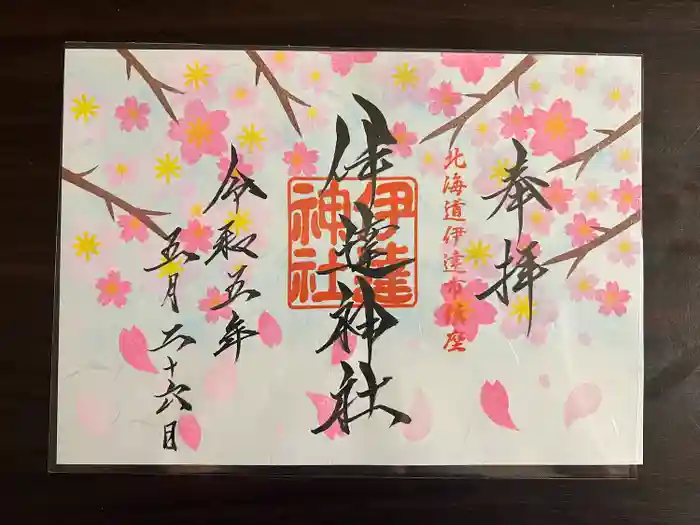 奉拝
北海道伊達市鎮座
伊達神社
伊達
神社
令和五年
五月二十六日